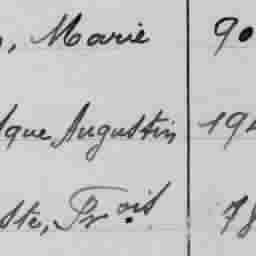 , Marie 90
que Augustin 194
ste, Frois 78